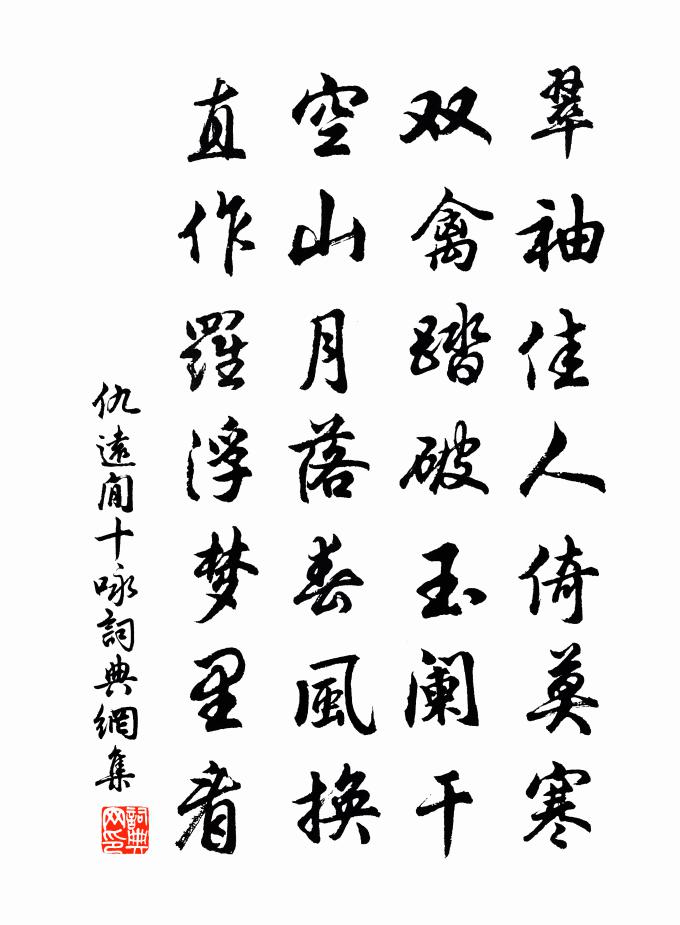 翠袖佳人倚莫寒
双禽踏破玉阑干
空山月落春風換
直作羅浮梦里看
仇遠閒十咏詞典網集
詞典网印